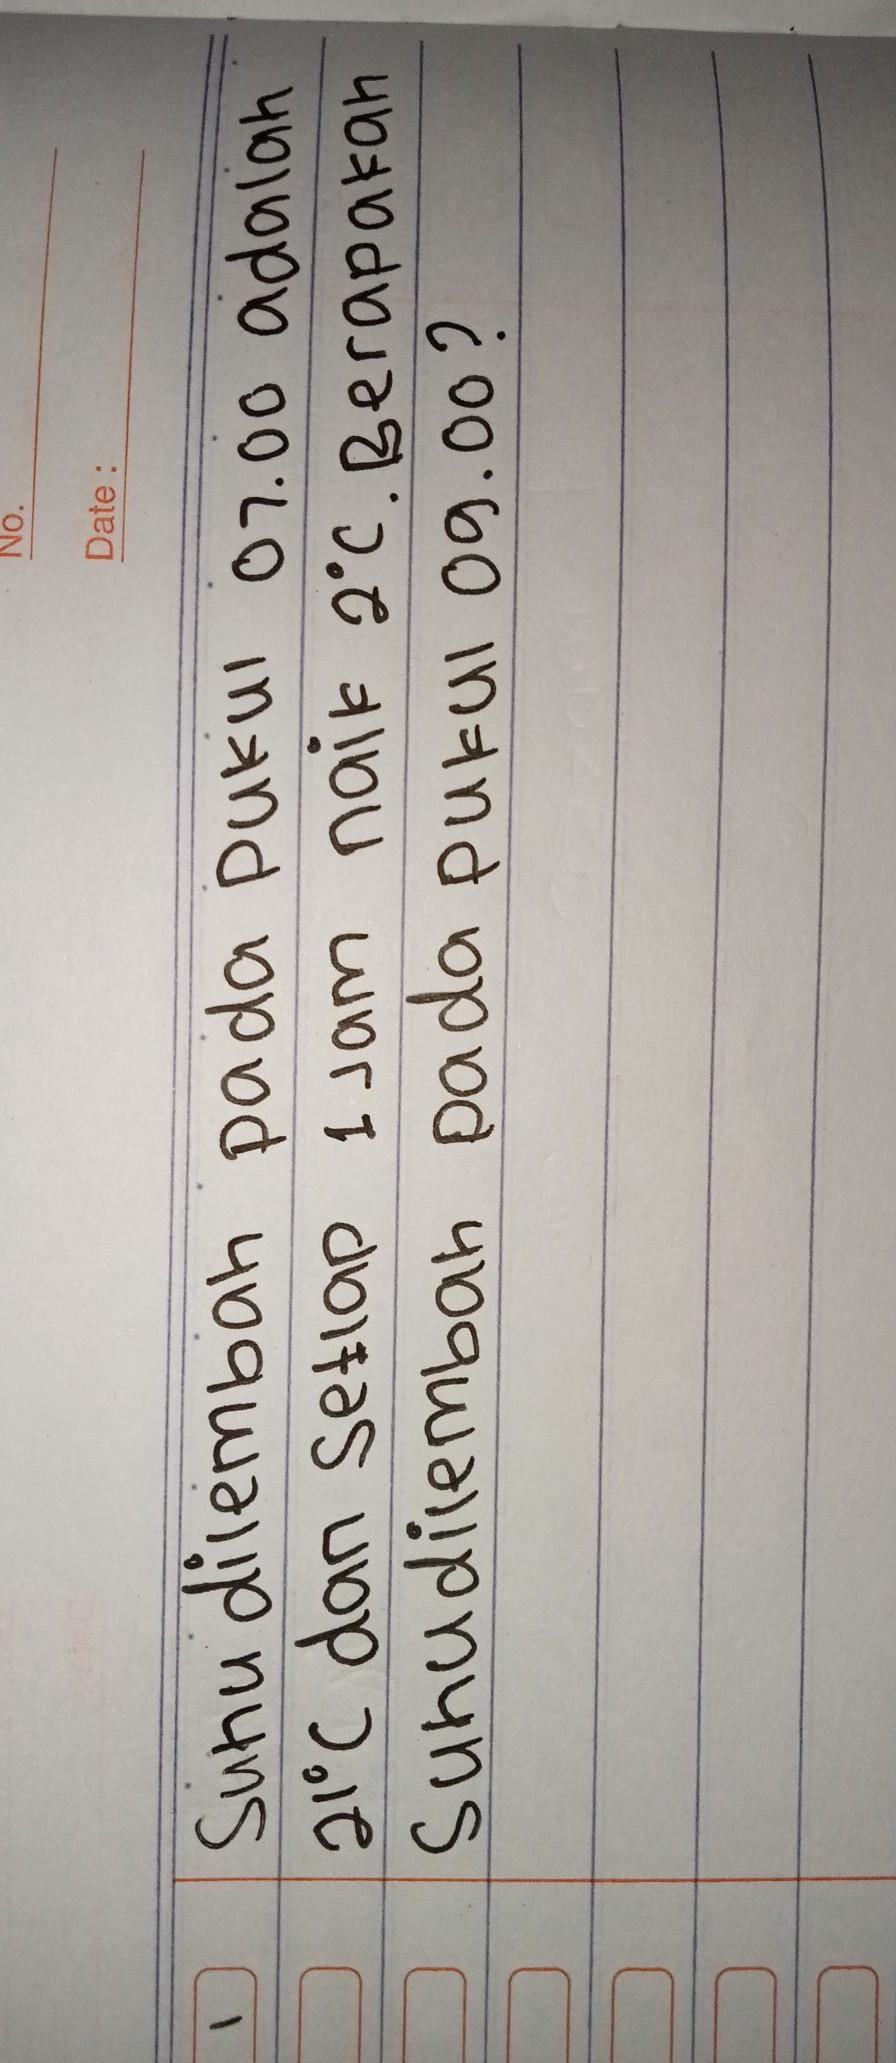 No.
Date :
1 Suhu dilembah pada pukul 07.00 adalah
21°C dan Setiap 1 Jam naik 2°C. Berapakah
Suhu dilembah pada pukul 09.00?